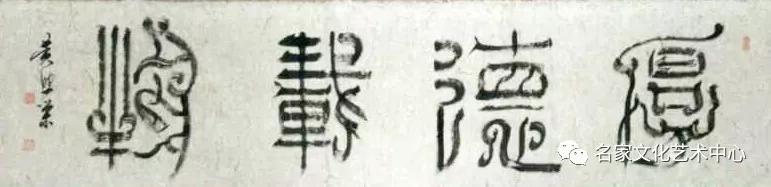 厚德載物
名家文化艺术中心